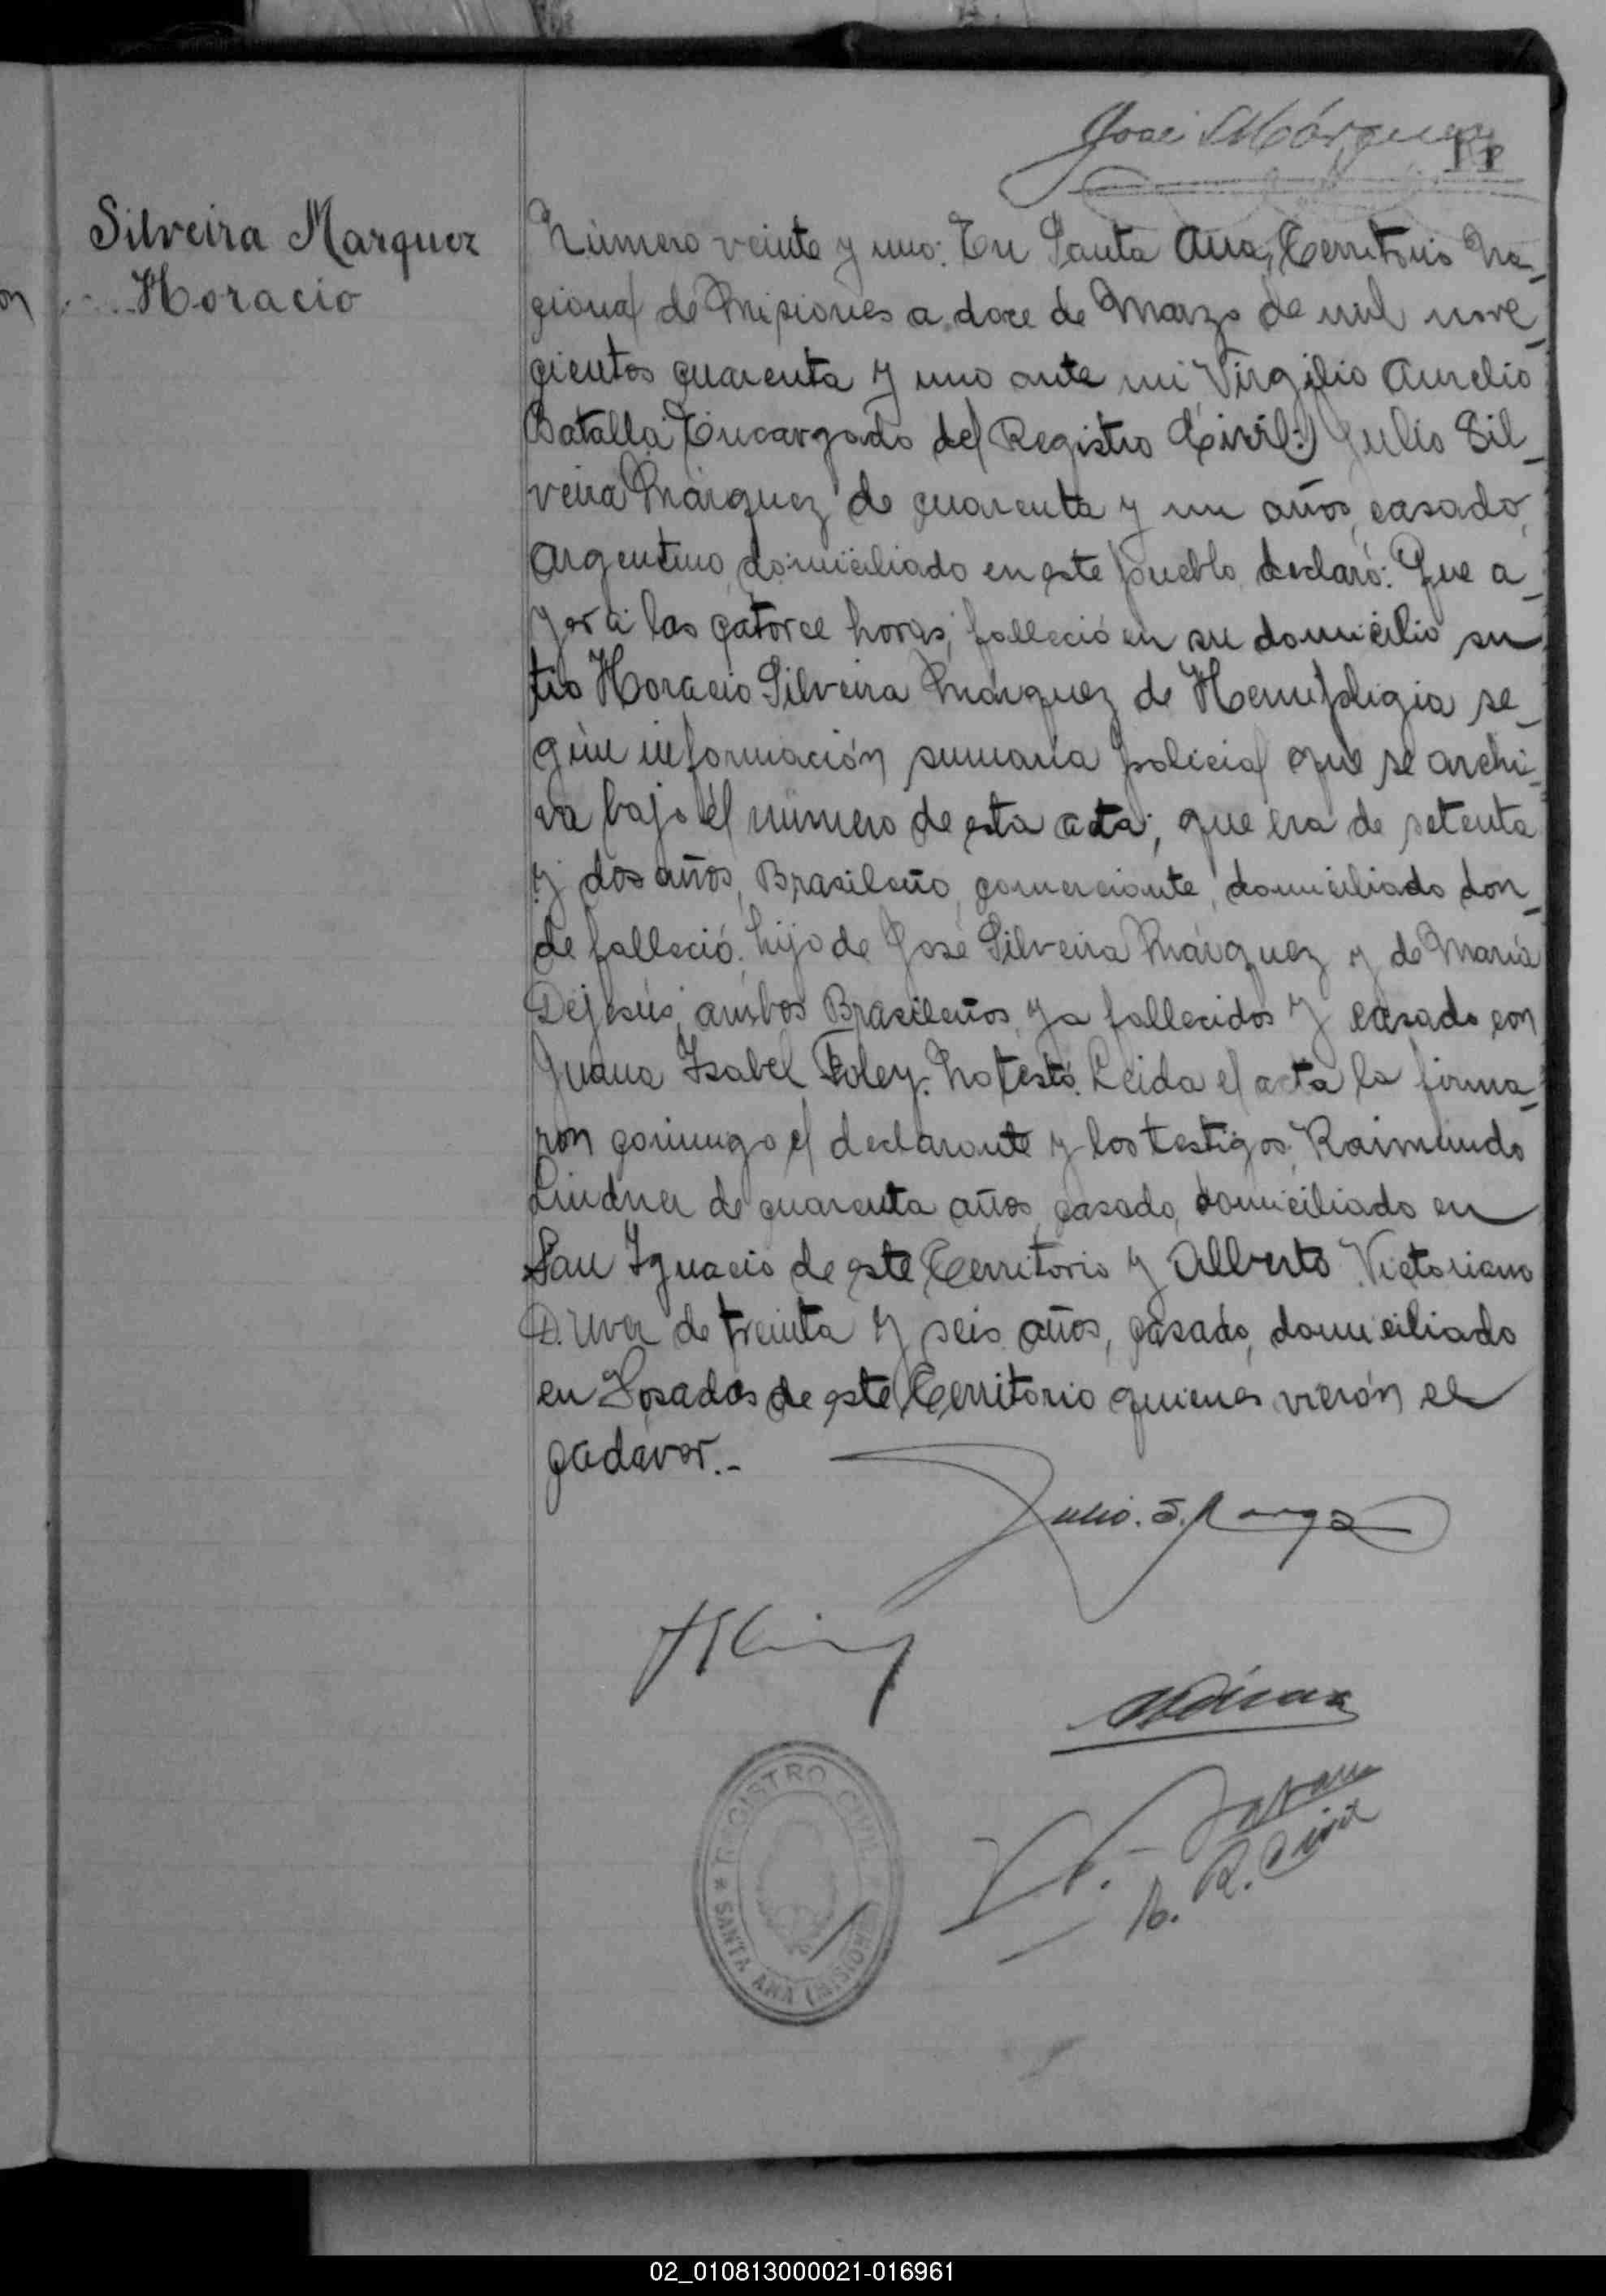 José Márquez
11
Silveira Marquez
Horacio
on
Número veinte y uno: En Santa Ana, Territorio Na-
cional de Misiones a doce de Marzo de mil nove-
cientos cuarenta y uno ante mi Virgilio Aurelio
Batalla Encargado del Registro Civil: Julio Sil-
veira Márquez de cuarenta y un años, casado,
Argentino, domiciliado en este pueblo, declaró: Que a-
yer a las catorce horas, falleció en su domicilio su
tio Horacio Silveira Márquez de Hemipligia se-
gún información sumaria policial que se archi-
va bajo el número de esta acta; que era de setenta
y dos años, Brasileño, comerciante, domiciliado don-
de falleció. hijo de José Silveira Márquez y de María
Dejesús, ambos Brasileños, ya fallecidos y casado con
Juana Isabel Foley. No testó. Leida el acta la firma-
ron conmigo el declarante y los testigos, Raimundo
Lindner de cuarenta años, casado, domiciliado en
San Ignacio de este Territorio y Alberto Victoriano
de treinta y seis años, casado, domiciliado
en Posadas de este Territorio quienes vierón el
cadáver.-
Julio. S.
R. Civil
REGISTRO CIVIL
* SANTA ANA (MISIONES) *
02_010813000021-016961